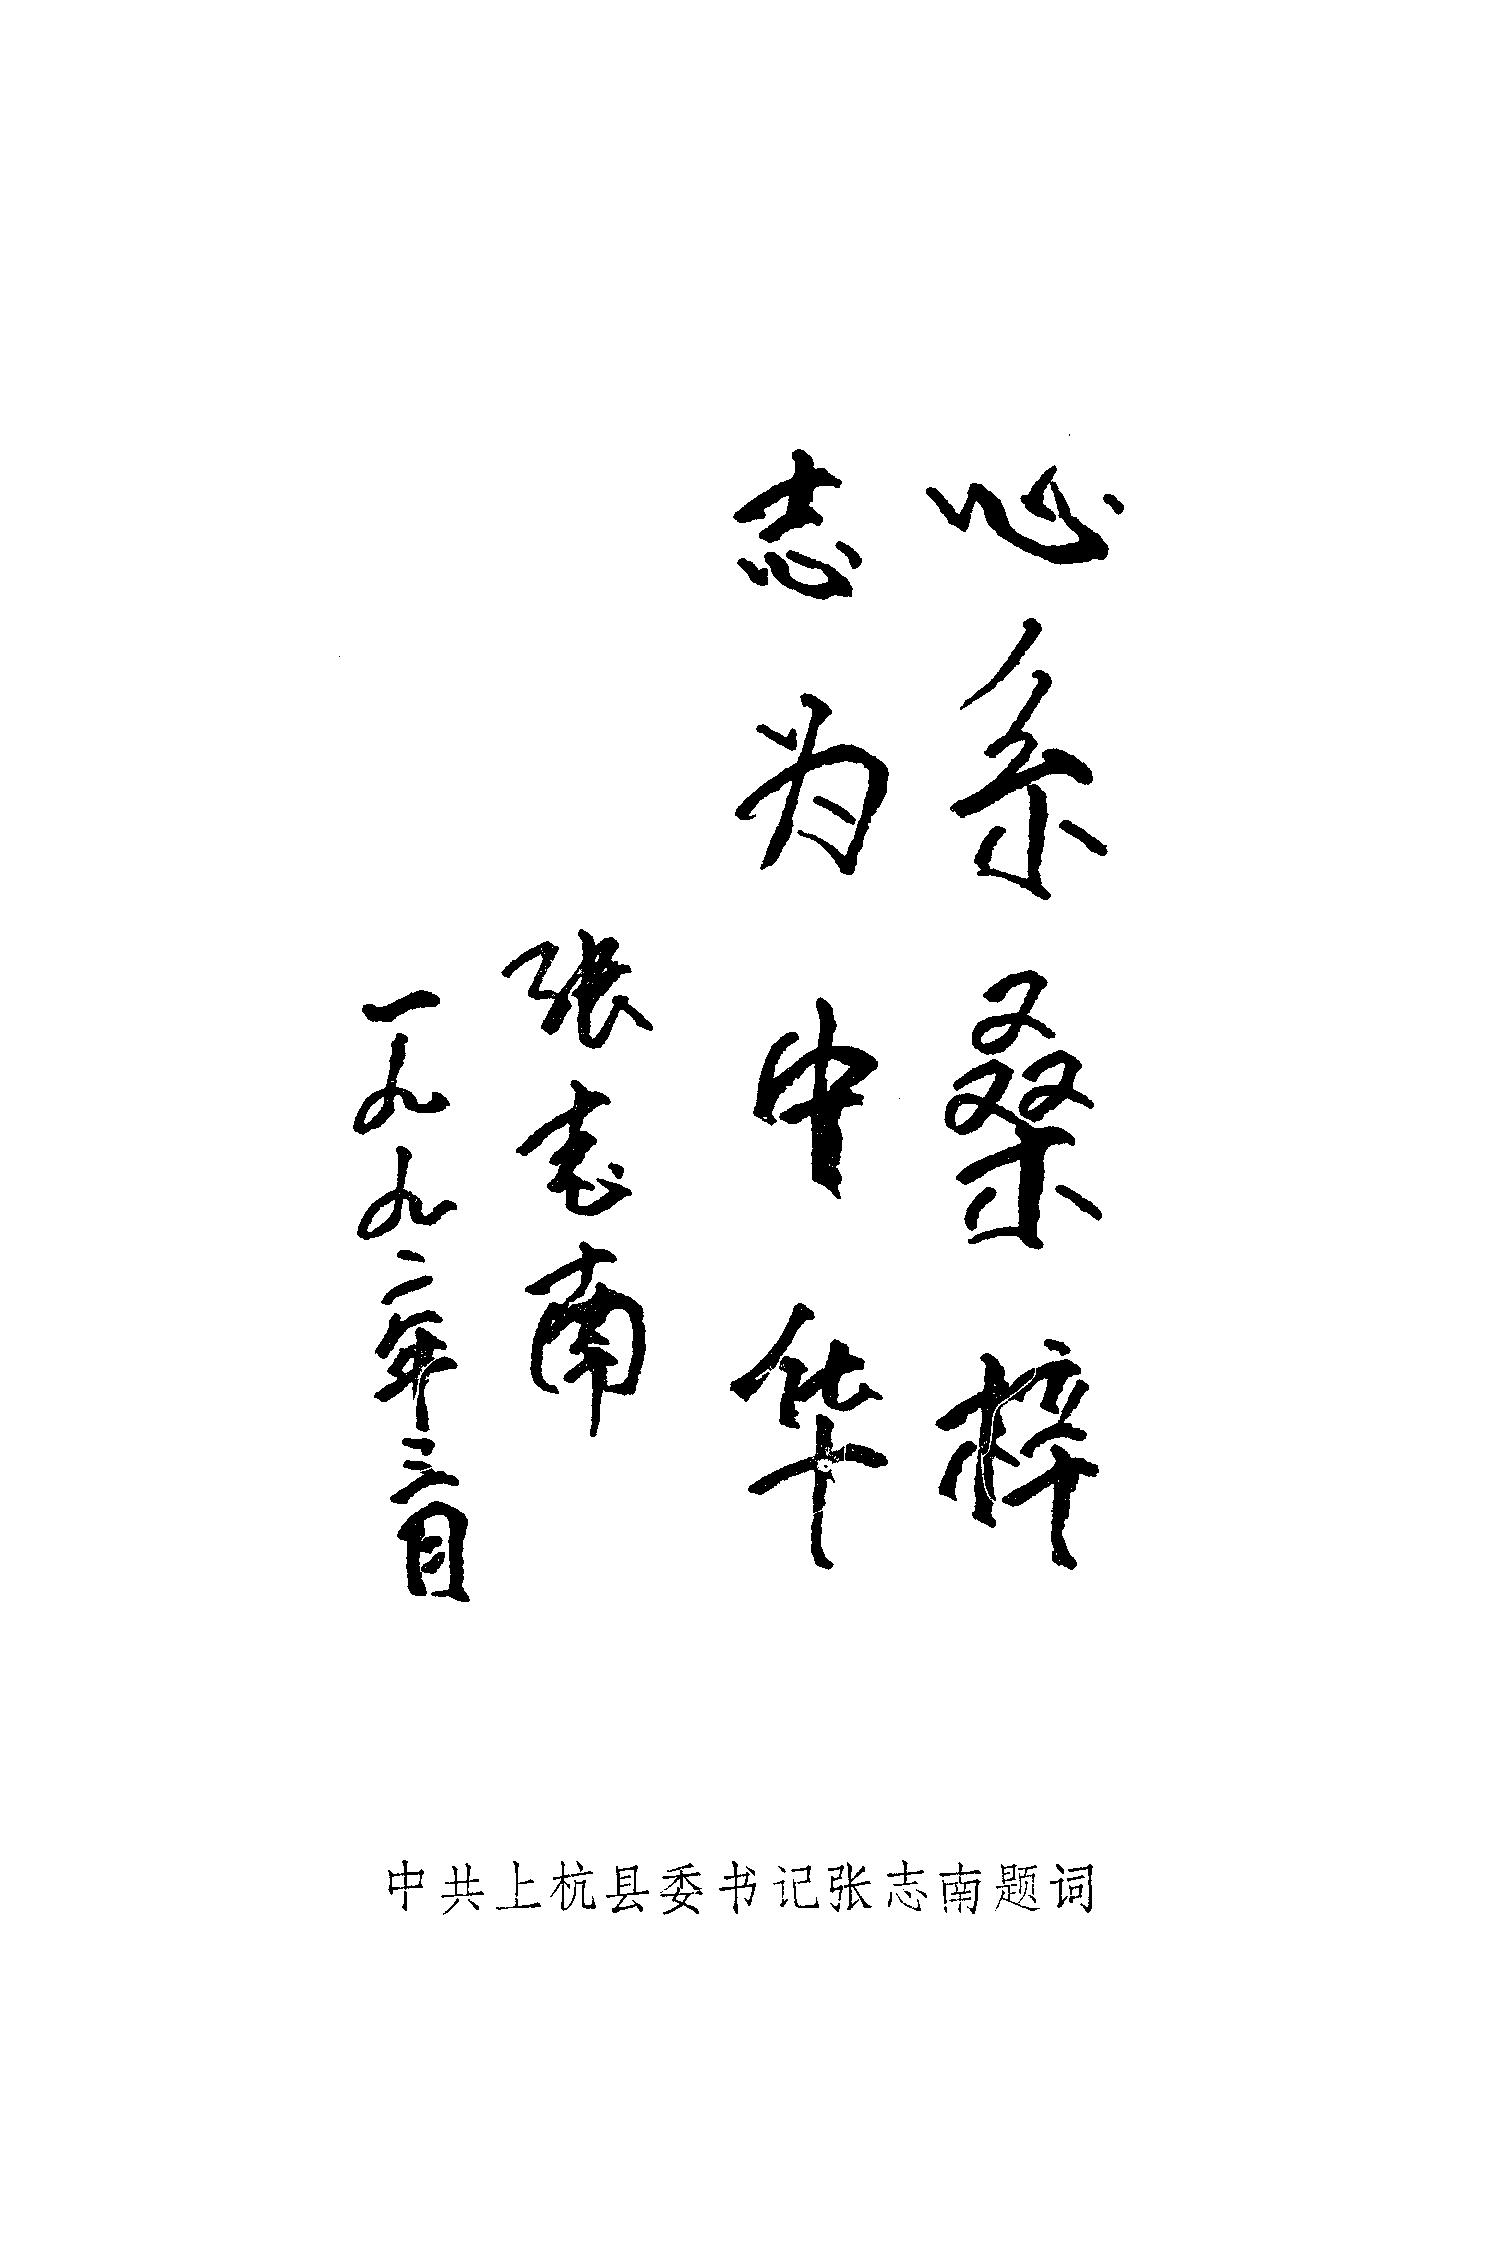 心系桑梓
志为中华
张志南
一九九二年三月
中共上杭县委书记张志南题词